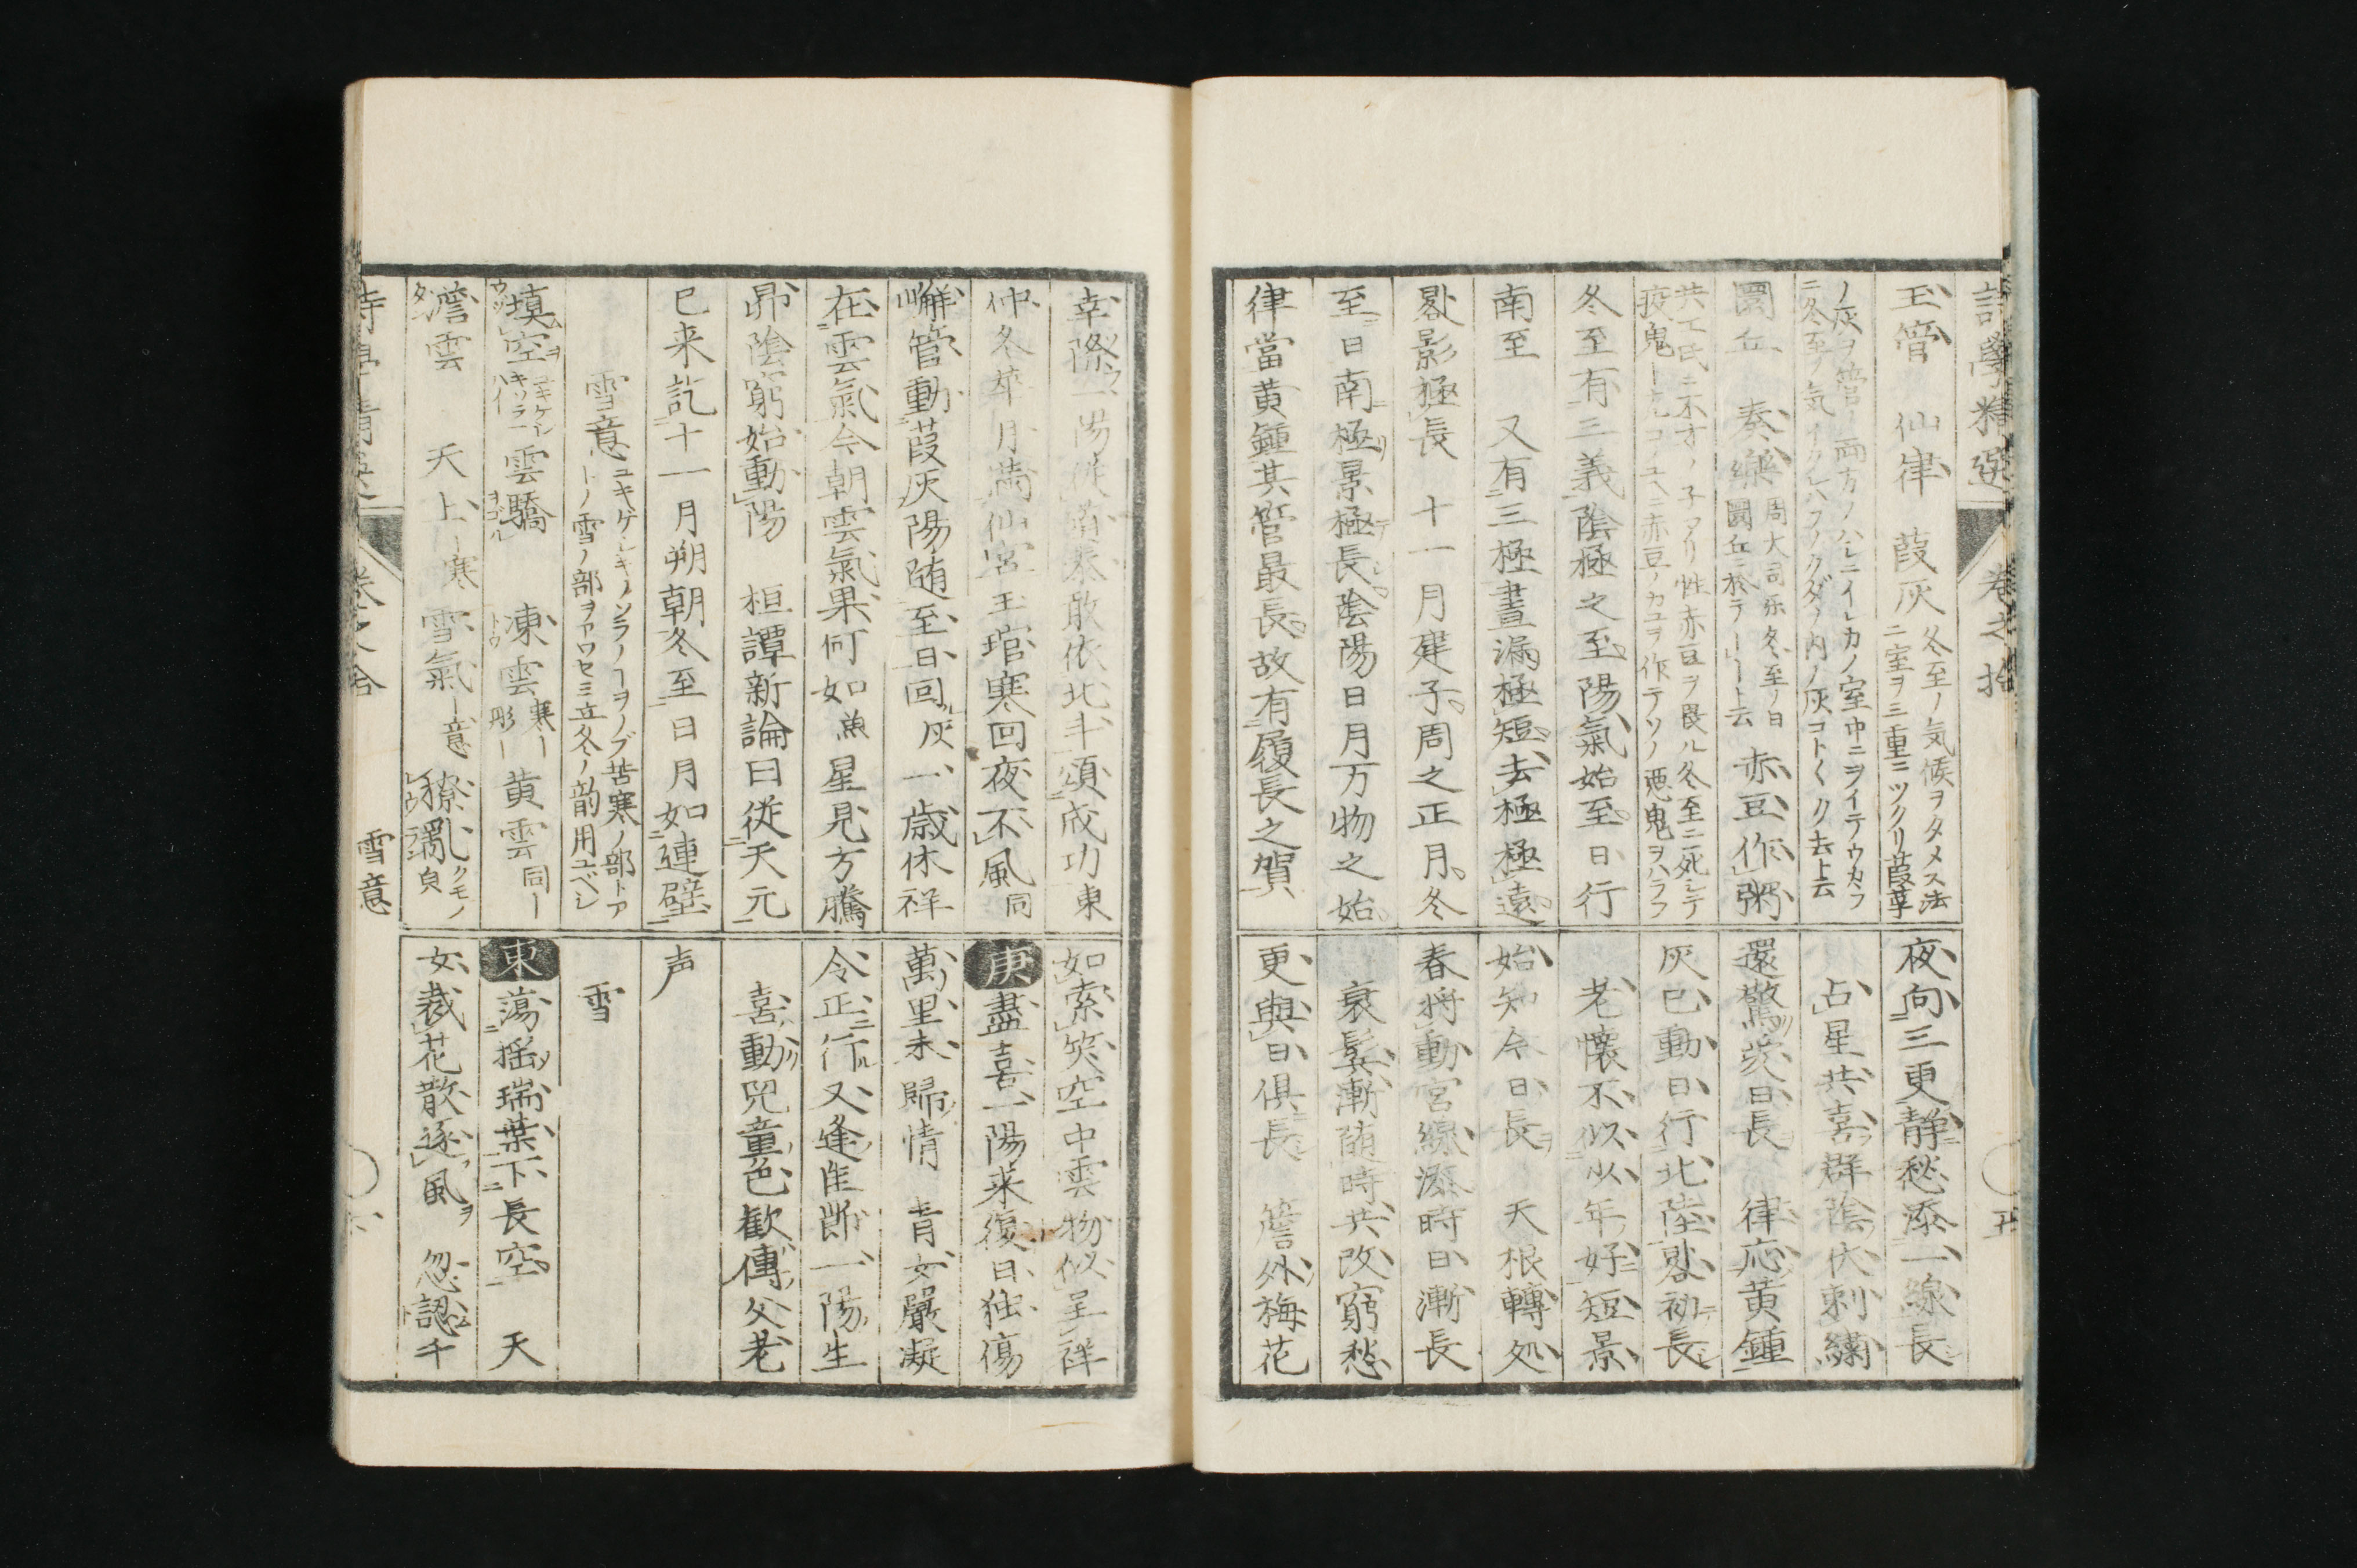 詩學精選 卷之拾
玉管 仙律 葭灰 冬至ノ気候ヲタメス法
ニ室ヲ三重ニツクリ葭莩
ノ灰ヲ管ノ両方ノハシニイレカノ室中ニヲイテウカヾフ
ニ冬至ノ気イタレバソノクダノ内ノ灰コト〱ク去ト云
圜丘 奏樂 周大司乐冬至ノ日
圜丘ニ於テ――ト云 赤豆作粥
共工氏ニ不才ノ子アリ性赤豆ヲ畏ル冬至ニ死シテ
疫鬼―ナルユヘニ赤豆ノカユヲ作テソノ悪鬼ヲハラフ
冬至有三義陰極之至陽氣始至日行
南至 又有三極晝漏極短去極極遠
晷影極長 十一月建子周之正月冬
至日南極景極長陰陽日月万物之始
律當黄鍾其管最長故有履長之賀
夜向三更静愁添一線長
占星共喜群陰伏刺繍
還驚炎日長 律応黄鍾
灰已動日行北陸晷初長
老懷不似少年好短景
始知今日長 天根轉処
春将動宮線添時日漸長
衰鬂漸随時共改窮愁
更與日俱長 簷外梅花
幸際一陽従 敢依北斗頌成功東
仲冬 月満仙宮玉琯寒回夜不風同
嶰管動葭灰陽随至日回灰一歳休祥
在雲氣今朝雲氣果何如魚星見方騰
昴陰窮始動陽 桓譚新論曰従天元
已来訖十一月朔朝冬至日月如連璧
雪意 ユキゲシキノソラノヿヲノブ苦寒ノ部トア
トノ雪ノ部ヲアワセミ立冬ノ韵用ユベシ
塡空 ユキケシ
キソラニ
ハイ 雲驕 凍雲 寒―
彤― 黄雲 同―
澹雲 天上―寒 雪氣―意 獠亂 クモノ
皃
如索笑空中雲物似呈祥
庚 盡喜一陽来復日独傷
萬里未歸情 青女嚴凝
令正行又逢隹節一陽生
喜動兒童色歓傳父老
声
雪
東 蕩揺瑞葉下長空 天
女裁花散逐風 忽認千
雪意